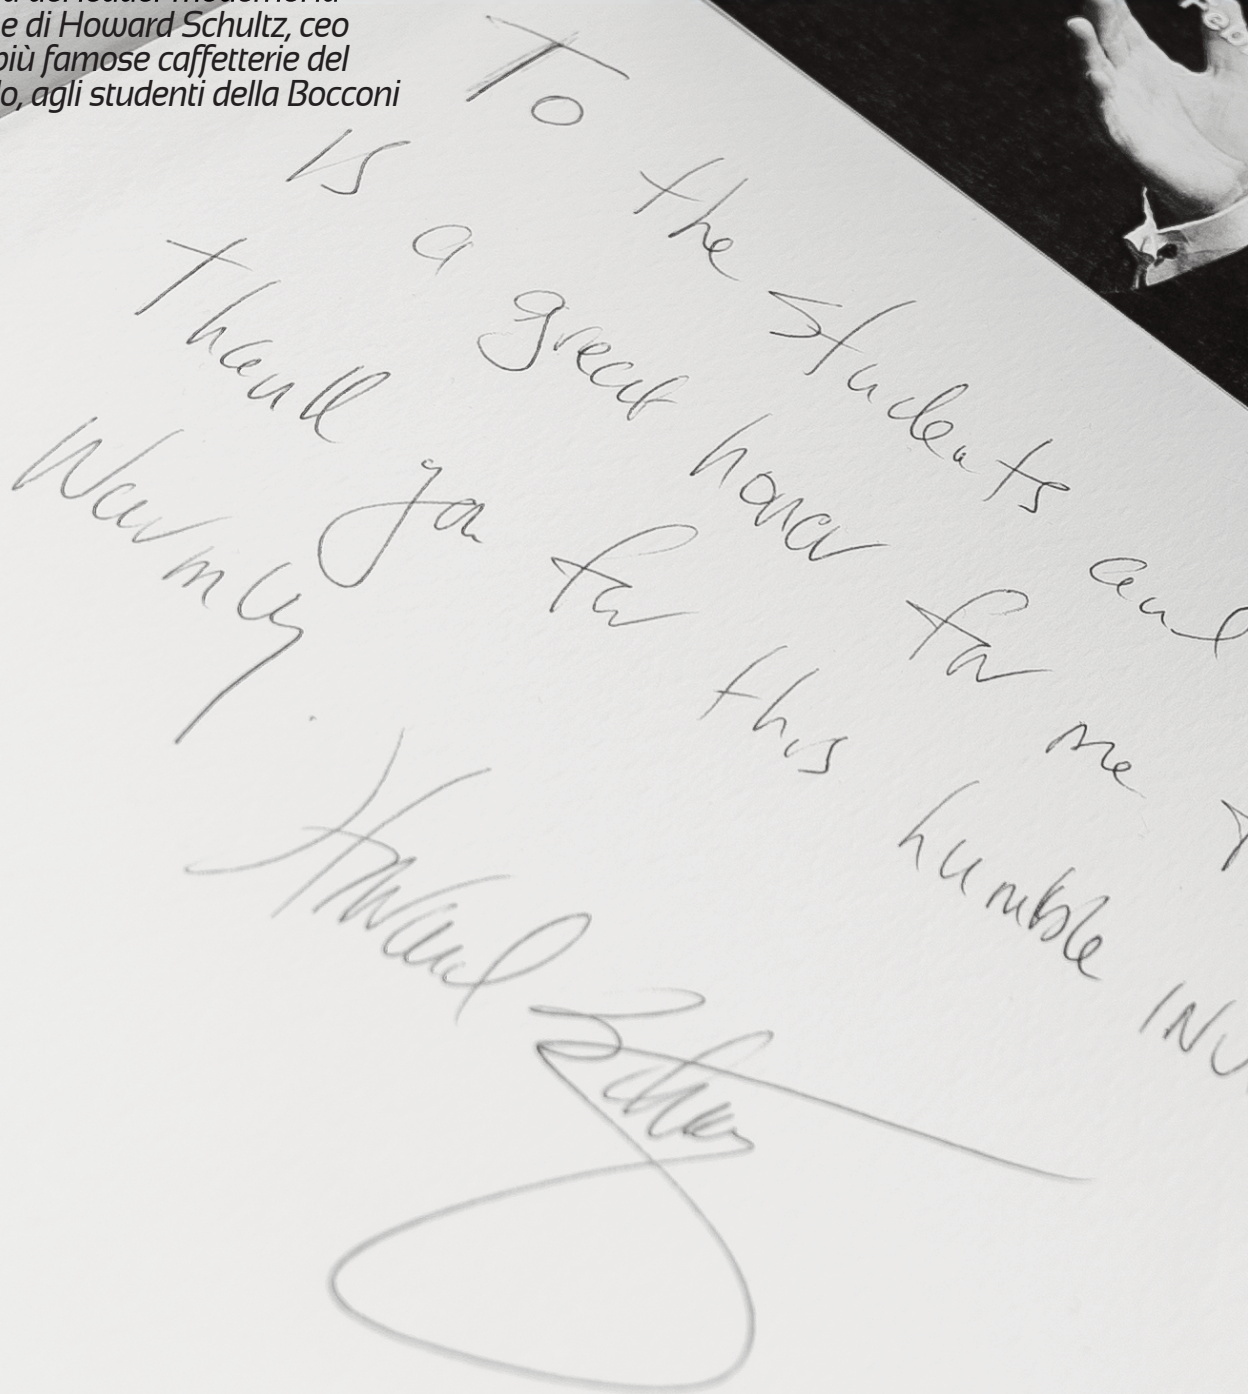 e di Howard Schultz, ceo
più famose caffetterie del
lo, agli studenti della Bocconi
To the students and
is a great honor for me
Thank you for this humble INV
Warmly.
Howard Schultz